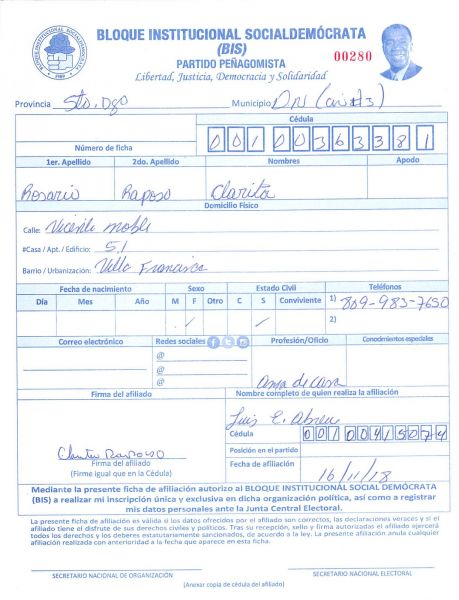 BLOQUE INSTITUCIONAL SOCIALDEMÓCRATA
(BIS)
PARTIDO PEÑAGOMISTA
Libertad, Justicia, Democracia y Solidaridad
00280
Provincia Sto. Dgo Municipio DN
Cédula
Número de ficha 001 0036338 1
1er. Apellido 2do. Apellido Nombres Apodo
Rosario Raposo Clarita
Domicilio Físico
Calle: Vicente Noble
#Casa / Apt. / Edificio: 51
Barrio / Urbanización: Villa Francisca
Fecha de nacimiento Sexo Estado Civil Teléfonos
Día Mes Año M F Otro C S Conviviente 1) 809-983-7650
2)
Correo electrónico Redes sociales Profesión/Oficio Conodmientos especiales
@
@
@ ama de casa
Firma del afiliado Nombre completo de quien realiza la afiliación
Luis E. Abreu
Cédula 001 0041507 4
Posición en el partido
Firma del afiliado
(Firme igual que en la Cédula)
Fecha de afiliación 16/11/18
Mediante la presente ficha de afiliación autorizo al BLOQUE INSTITUCIONAL SOCIAL DEMÓCRATA
(BIS) a realizar mi inscripción única y exclusiva en dicha organización política, así como a registrar
mis datos personales ante la Junta Central Electoral.
La presente ficha de afiliación es válida si los datos ofrecidos por el afiliado son correctos, las declaraciones veraces y si el
afiliado tiene el disfrute de sus derechos civiles y políticos. Tras su recepción, sello y firma autorizadas el afiliado ejercerá
todos los derechos y los deberes estatutariamente sancionados, de acuerdo a la ley. La presente afiliación anula cualquier
afiliación realizada con anterioridad a la fecha que aparece en esta ficha.
SECRETARIO NACIONAL DE ORGANIZACIÓN SECRETARIO NACIONAL ELECTORAL
(Anexar copia de cédula del afiliado)